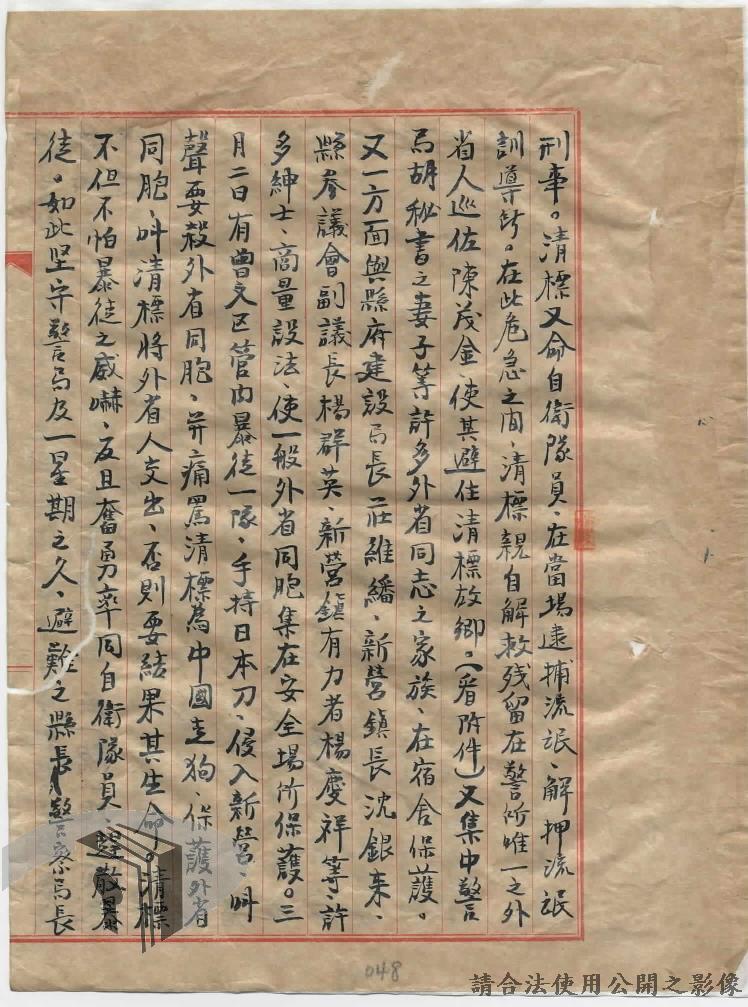 刑事。清標又命自衛隊員、在當場逮捕流氓、解押流氓
訓導所。在此危急之间、清標親自解救残留在警所唯一之外
省人巡佐陳茂金、使其避住清標故鄉。（看附件）又集中警
局胡秘書之妻子等許多外省同志之家族、在宿舍保護。
又一方面與縣府建設局長莊維藩、新营鎮長沈銀来、
縣參議會副議長楊群英、新营鎮有力者楊慶祥等、許
多紳士、商量設法、使一般外省同胞集在安全場所保護。三
月二日有曾文区管内暴徒一隊、手持日本刀、侵入新营、叫
聲要殺外省同胞、并痛罵清標為中國走狗、保護外省
同胞、叫清標將外省人交出、否則要結果其生命。清標
不但不怕暴徒之威嚇、反且奮勇率同自衛隊員、趕散暴
徒。如此坚守警局及一星期之久、避難之縣長警察局長
048
請合法使用公開之影像